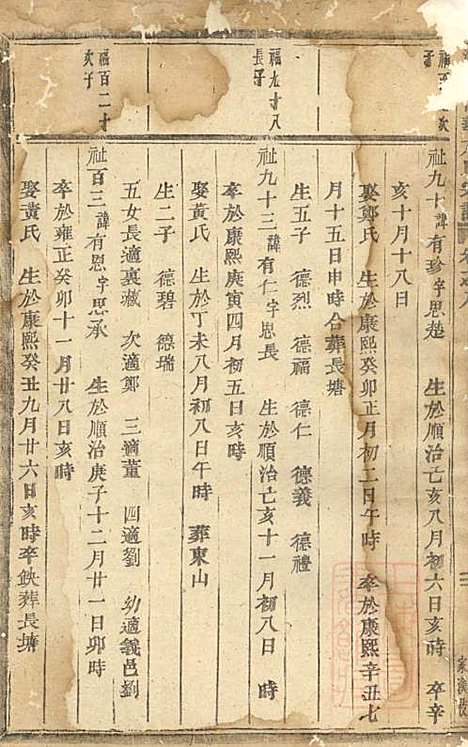 福百
次
子
祉九十諱有珍字思楚 生於順治亡亥八月初六日亥時 卒辛
亥十月十八日
娶鄭氏 生於康熙癸卯正月初二日午時 卒於康熙辛丑七
月十五日申時合葬長塘
生五子 德烈 德福 德仁 德義 德禮
福九十八
長子
祉九十三諱有仁字思長 生於順治亡亥十一月初八日 時
卒於康熙庚寅四月初五日亥時
娶黃氏 生於丁未八月初八日午時 葬東山
生二子 德碧 德瑞
五女長適裏溆 次適鄭 三適董 四適劉 幼適義邑劉
福百二十
次子
祉百三諱有恩字思承 生於順治庚子十二月廿一日卯時
卒於雍正癸卯十一月廿八日亥時
娶黃氏 生於康熙癸丑九月廿六日亥時卒缺葬長塘